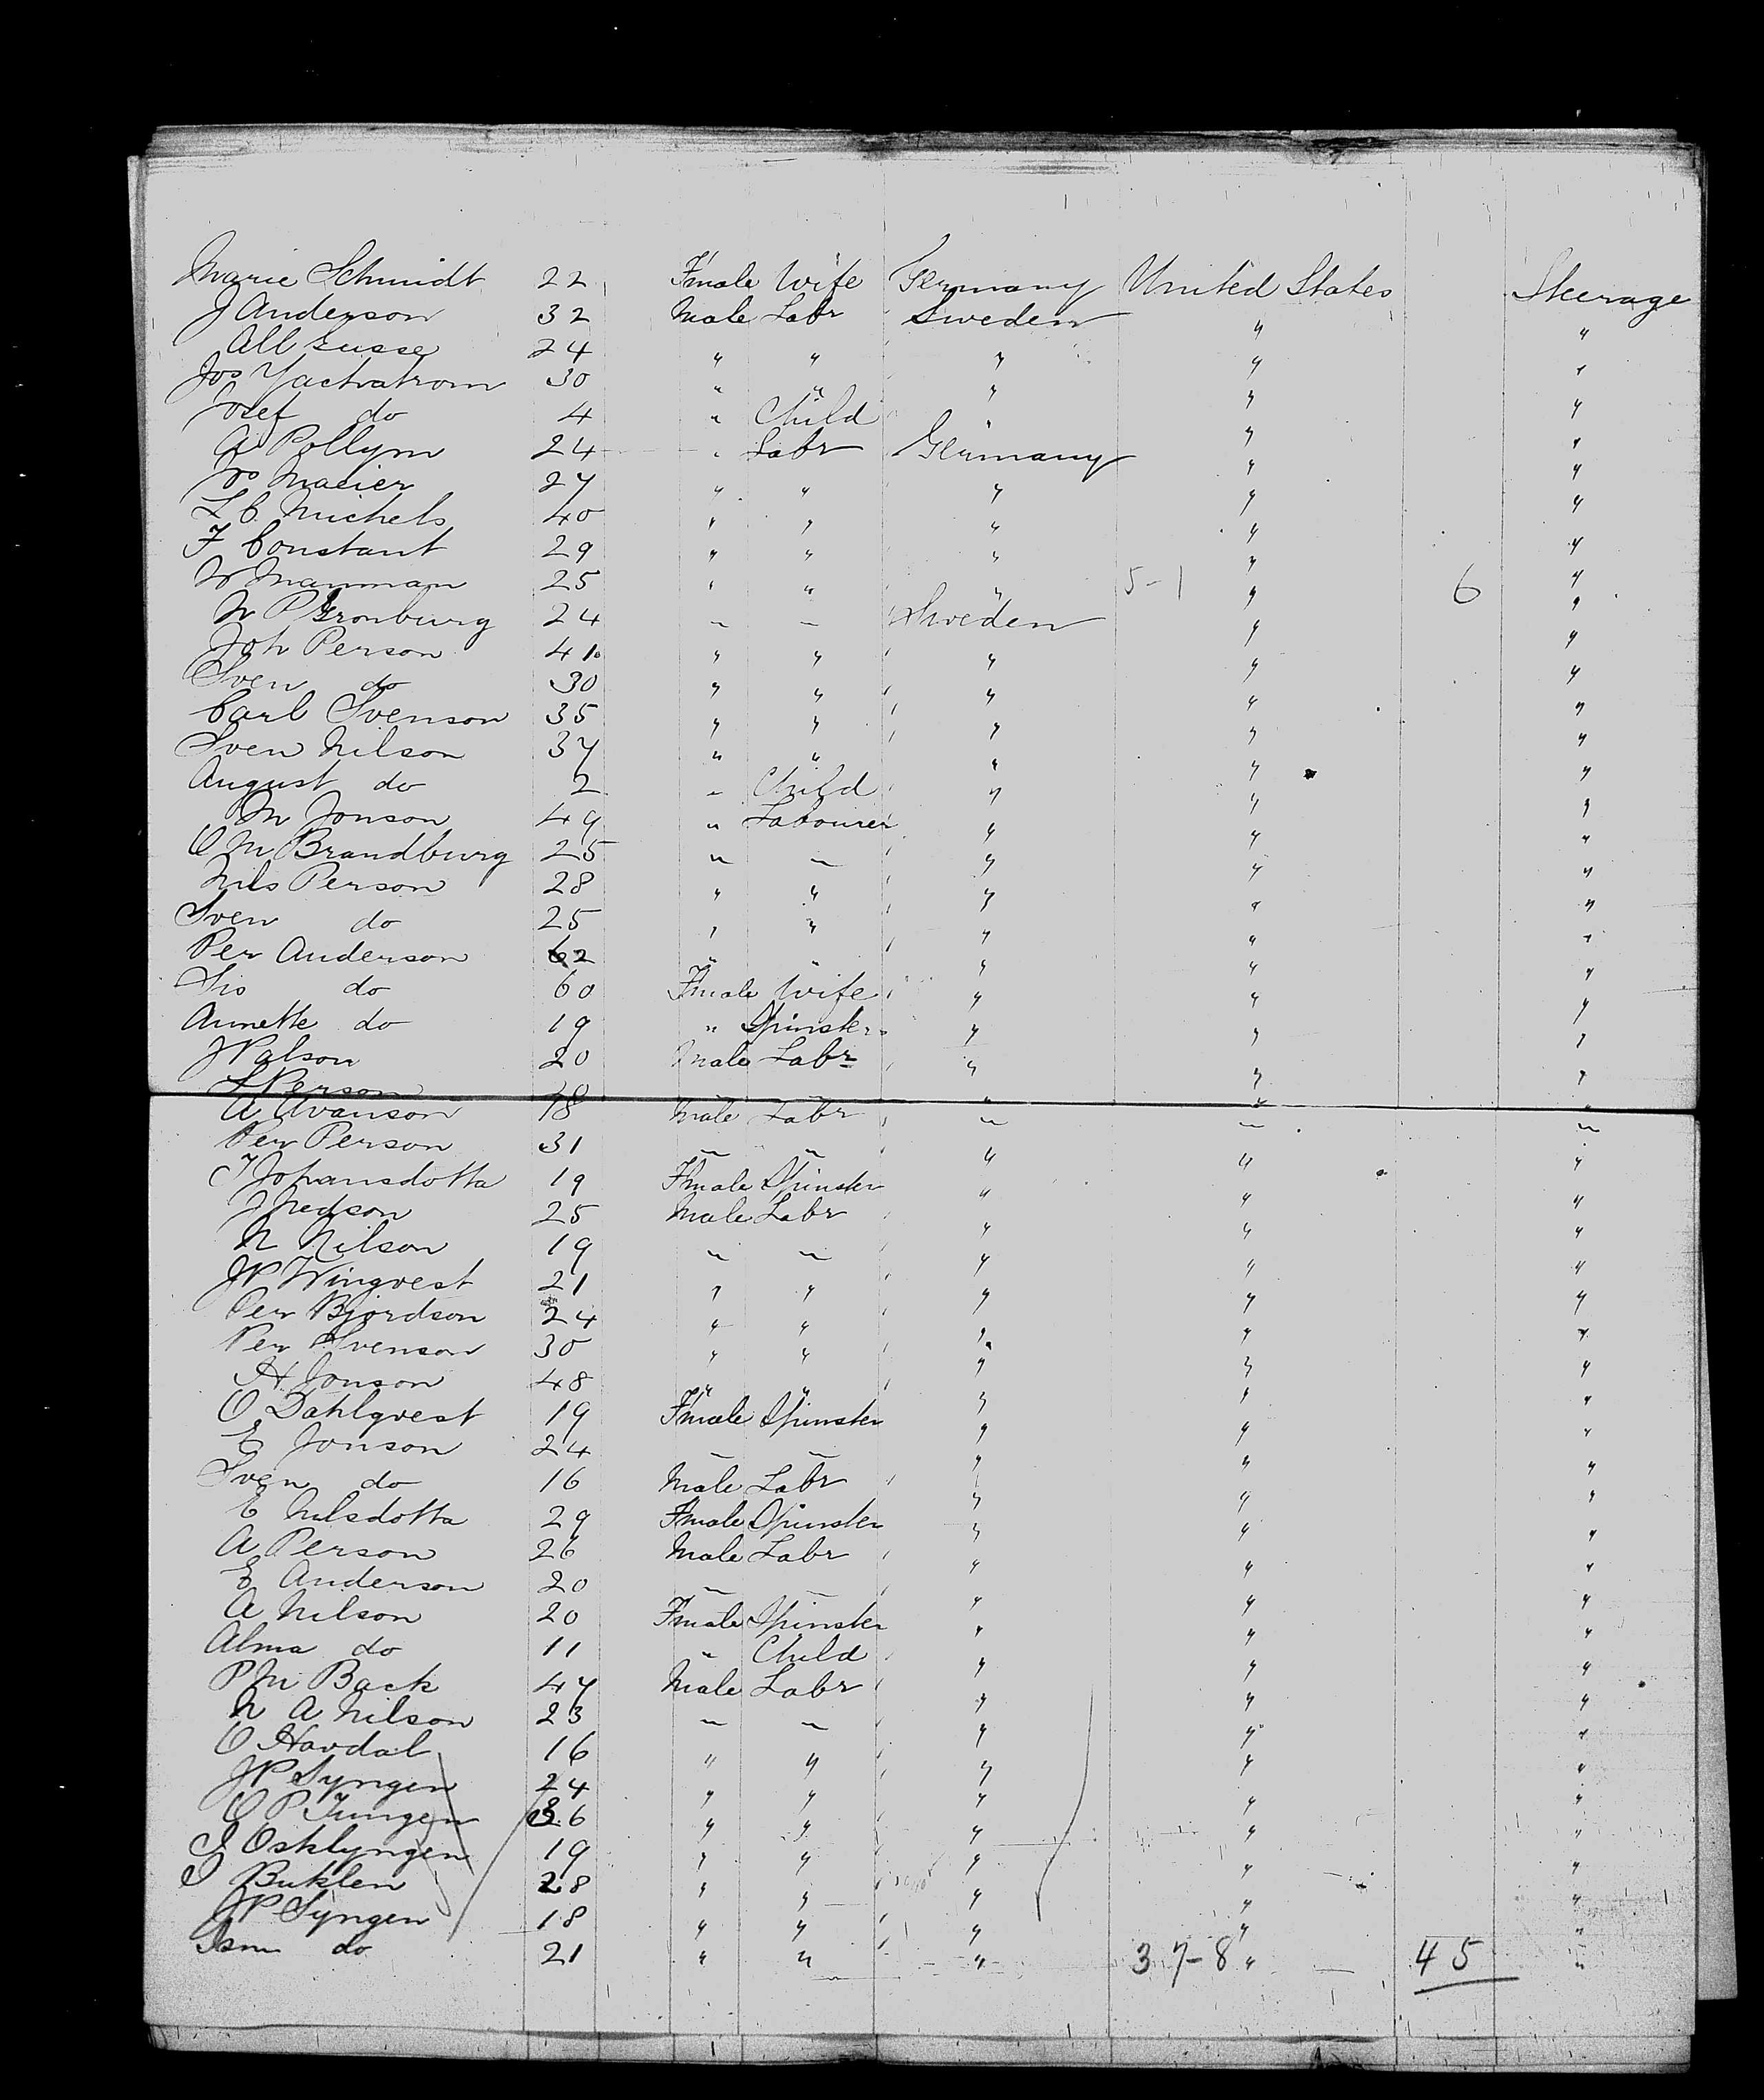 Marie Schmidt 22 Fmale Wife Germany United States Steerage
J Anderson 32 Male Labr Sweden " "
Alb Susse 24 " " " " "
Jos Yachatrom 30 " " " " "
Josef do 4 " Child " " "
A Pollym 24 " Labr Germany " "
Jos Maeier 27 " " " " "
L C Michels 40 " " " " "
F Constant 29 " " " " "
W Manman 25 " " " 5-1 " 6 "
N P Gronburg 24 " " Sweden " "
Joh Person 41 " " " " "
Sven do 30 " " " " "
Carl Svenson 35 " " " " "
Sven Nilson 37 " " " " "
August do 2 " Child " " "
M Jonson 49 " Labourer " " "
O M Brandburg 25 " " " " "
Nils Person 28 " " " " "
Sven do 25 " " " " "
Per Anderson 62 " " " " "
Sis do 60 Fmale Wife " " "
Annette do 19 " Spinster " " "
J Palson 20 Male Labr " " "
S Person " " "
A Avanson 18 Male Labr " " "
Per Person 31 " " " " "
J Johansdotta 19 Fmale Spinster " " "
J Nedson 25 Male Labr " " "
N Nilson 19 " " " " "
JP Wingvest 21 " " " " "
Per Bjordson 24 " " " " "
Per Svenson 30 " " " " "
H Jonson 48 " " " " "
O Dahlqvest 19 Fmale Spinster " " "
E Jonson 24 " " " " "
Sven do 16 Male Labr " " "
E Nilsdotta 29 Fmale Spinster " " "
A Person 26 Male Labr " " "
E Anderson 20 " " " " "
A Nilson 20 Fmale Spinster " " "
Alma do 11 " Child " " "
P M Back 47 Male Labr " " "
N A Nilson 23 " " " " "
O Havdal 16 " " " " "
JP Syngen 24 " " " " "
O P Tungen 26 " " " " "
J Osklyngen 19 " " " " "
J Buklen 28 " " " " "
JP Syngen 18 " " " " "
do 21 " " " 37-8 " 45 "